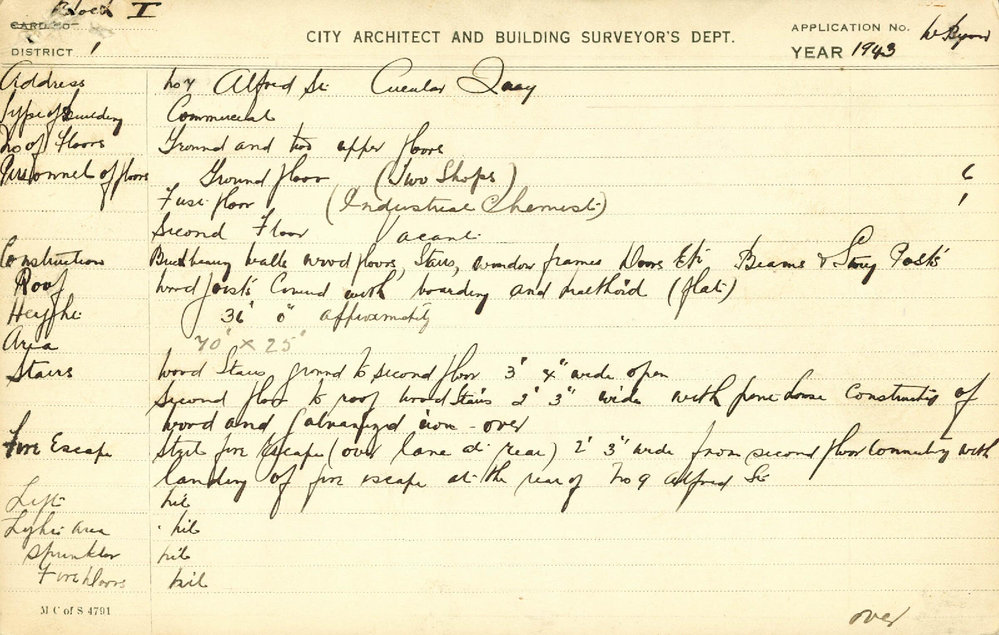 Block I
CARD No.
DISTRICT 1
CITY ARCHITECT AND BUILDING SURVEYOR'S DEPT.
APPLICATION No.
YEAR 1943
Address No 7 Alfred St. Circular Quay
Type of Building Commercial
No of Floors Ground and two upper floors
Personnel of floors Ground floor (Two Shops) 6
First floor (Industrial Chemist) 1
Second Floor Vacant
Construction Brick bearing walls wood floors, Stairs, window frames Doors Etc Beams & Story Posts
Roof Wood joists Covered with boarding and malthoid (flat)
Height 36' 0" approximately
Area 70' x 25'
Stairs Wood Stairs ground to second floor 3' 4" wide open
Second floor to roof wood Stairs 2' 3" wide with penthouse Construction of
wood and galvanized iron - over
Fire Escape Steel fire Escape (over lane at rear) 2' 3" wide from second floor connecting with
landing of fire escape at the rear of No 9 Alfred St
Lift nil
Light area nil
Sprinkler nil
Fire doors nil
M C of S 4791
over